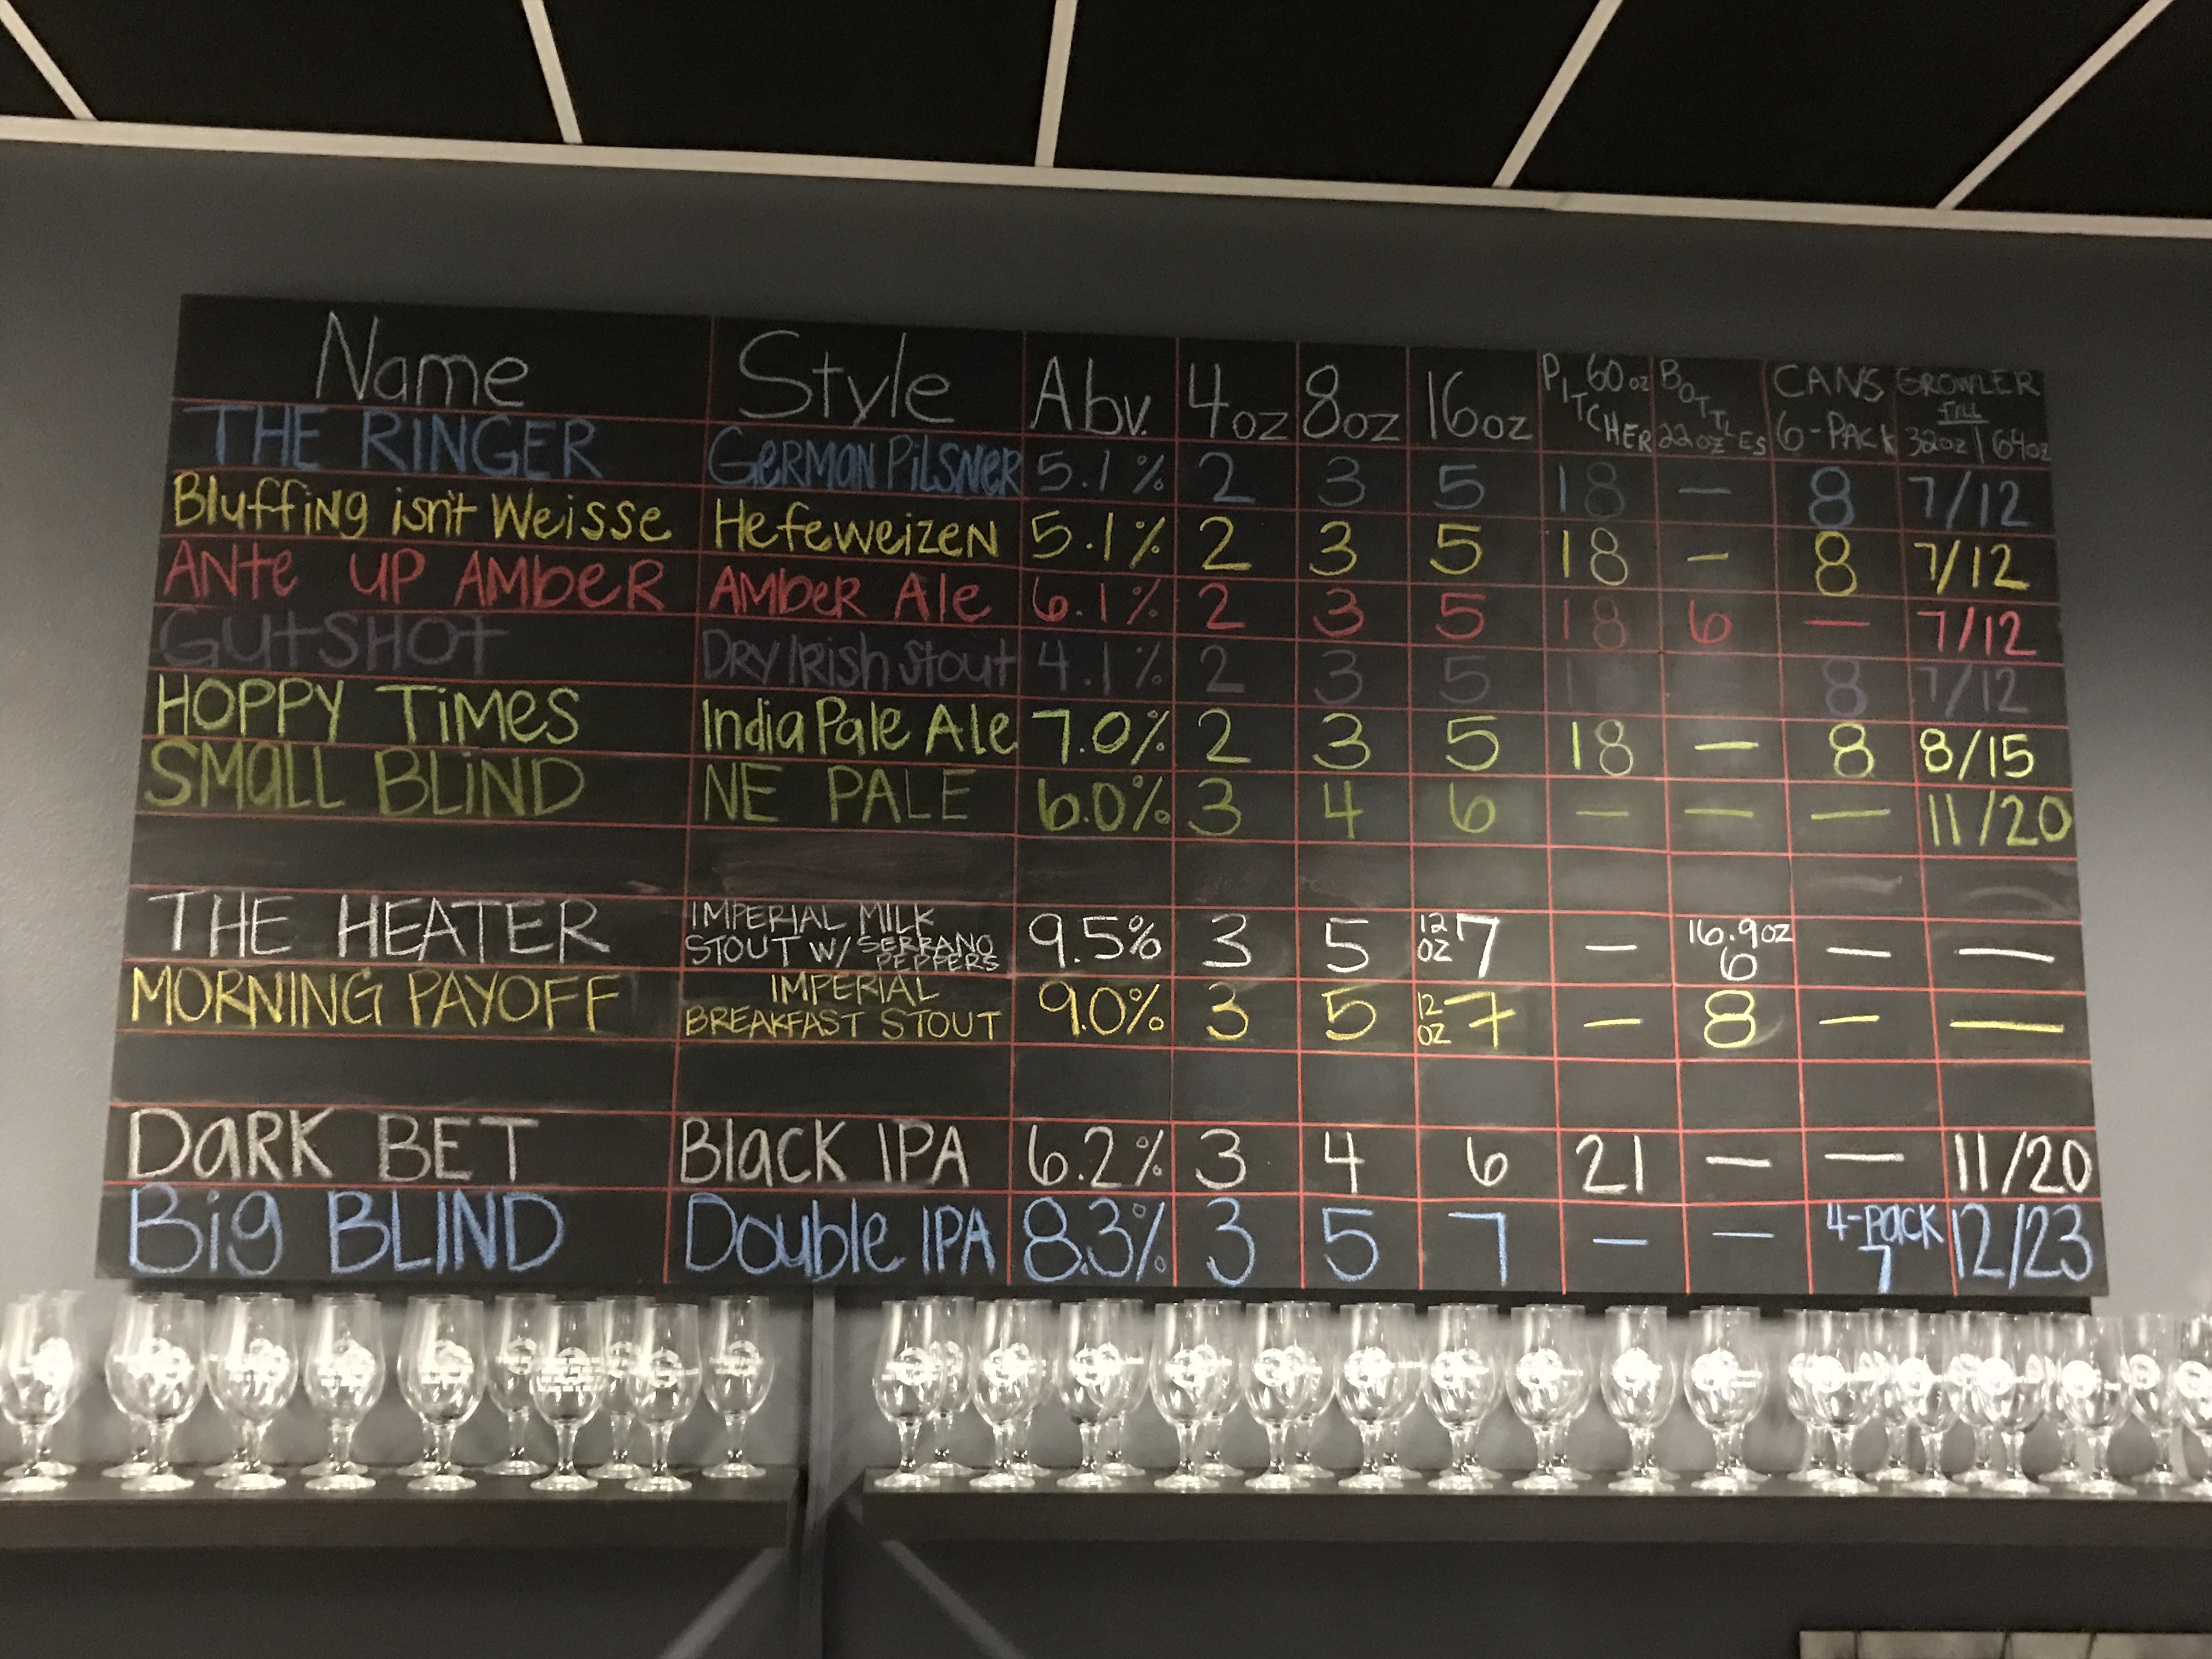 Name Style Abv. 4oz 8oz 16oz PITCHER 60oz BOTTLES 22oz CANS 6-PACK GROWLER FILL 32oz | 64oz
THE RINGER GERMAN PILSNER 5.1% 2 3 5 18 — 8 7/12
Bluffing isn't Weisse Hefeweizen 5.1% 2 3 5 18 — 8 7/12
ANte UP AMbeR AMbeR Ale 6.1% 2 3 5 18 6 — 7/12
GutSHOt DRY IRish Stout 4.1% 2 3 5 8 7/12
HOPPY TiMes India Pale Ale 7.0% 2 3 5 18 — 8 8/15
SMaLL BLiND NE PALE 6.0% 3 4 6 — — — 11/20
THE HEATER IMPERIAL MILK STOUT W/ SERRANO PEPPERS 9.5% 3 5 12 OZ 7 — 16.9oz 6 — —
MORNING PAYOFF IMPERIAL BREAKFAST STOUT 9.0% 3 5 12 OZ 7 — 8 — —
DaRK BET BlacK IPA 6.2% 3 4 6 21 — — 11/20
Big BLIND Double IPA 8.3% 3 5 7 — — 4-PacK 7 12/23